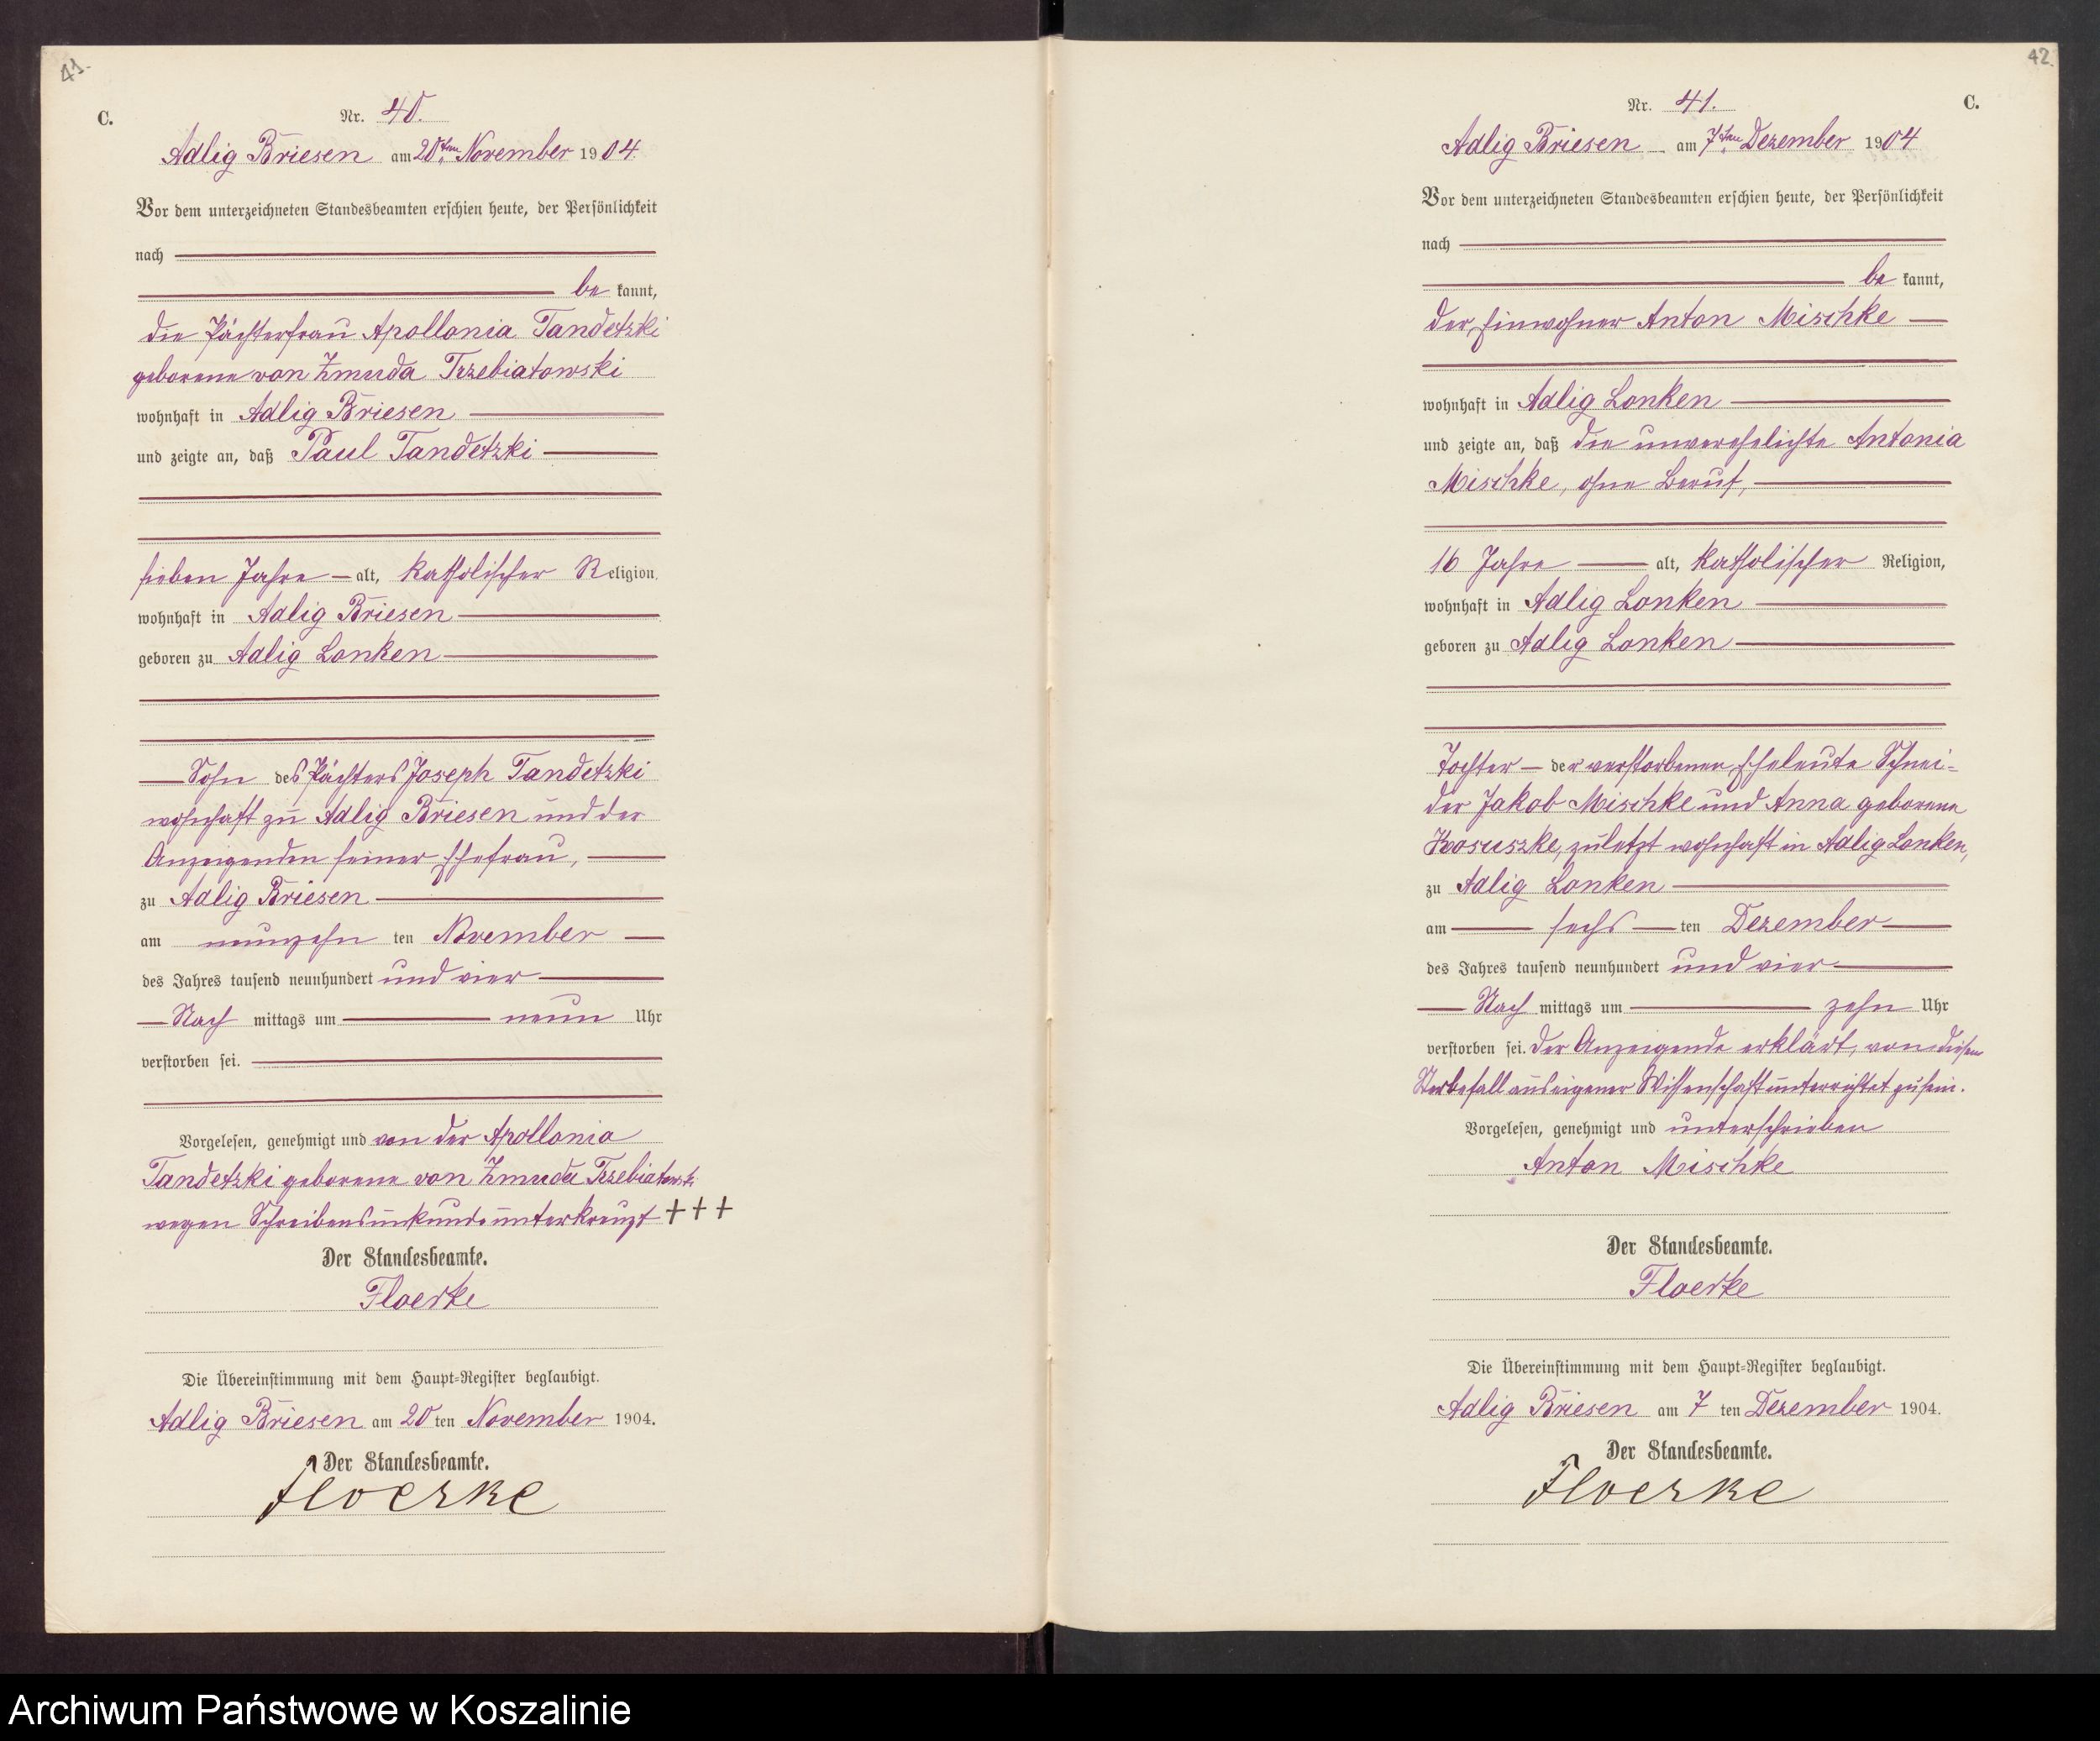 41.
C.
Nr. 40.
Adlig Briesen am 20ten November 1904.
Vor dem unterzeichneten Standesbeamten erschien heute, der Persönlichkeit
nach
be kannt,
die Pächterfrau Apollonia Tandetzki
geborene von Zmuda Trzebiatowski
wohnhaft in Adlig Briesen
und zeigte an, daß Paul Tandetzki
sieben Jahre alt, katholischer Religion,
wohnhaft in Adlig Briesen
geboren zu Adlig Lonken
Sohn des Pächters Joseph Tandetzki
wohnhaft zu Adlig Briesen und der
Anzeigenden seiner Ehefrau,
zu Adlig Briesen
am neunzehn ten November
des Jahres tausend neunhundert und vier
Nach mittags um neun Uhr
verstorben sei.
Vorgelesen, genehmigt und von der Apollonia
Tandetzki geborene von Zmuda Trzebiatowski
wegen Schreibensunkunde unterkreuzt +++
Der Standesbeamte.
Floerke
Die Übereinstimmung mit dem Haupt-Register beglaubigt.
Adlig Briesen am 20 ten November 1904.
Der Standesbeamte.
Floerke
42.
C.
Nr. 41.
Adlig Briesen am 7ten Dezember 1904
Vor dem unterzeichneten Standesbeamten erschien heute, der Persönlichkeit
nach
be kannt,
der Einwohner Anton Mischke
wohnhaft in Adlig Lonken
und zeigte an, daß die unverehelichte Antonia
Mischke, ohne Beruf,
16 Jahre alt, katholischer Religion,
wohnhaft in Adlig Lonken
geboren zu Adlig Lonken
Tochter der verstorbenen Eheleute Schnei-
der Jakob Mischke und Anna geborene
zuletzt wohnhaft in Adlig Lonken,
zu Adlig Lonken
am sechs ten Dezember
des Jahres tausend neunhundert und vier
Nach mittags um zehn Uhr
verstorben sei. Der Anzeigende erklärt, von diesem
Sterbefall aus eigener Wissenschaft unterrichtet zu sein.
Vorgelesen, genehmigt und unterschrieben
Anton Mischke
Der Standesbeamte.
Floerke
Die Übereinstimmung mit dem Haupt-Register beglaubigt.
Adlig Briesen am 7 ten Dezember 1904.
Der Standesbeamte.
Floerke
Archiwum Państwowe w Koszalinie